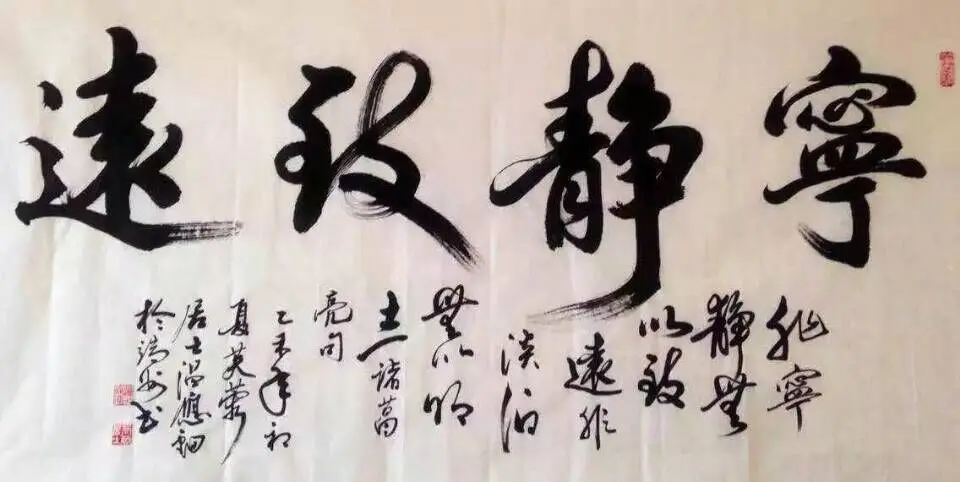 寧靜致遠
非寧
靜無
以致
遠非
淡泊
無以明
志諸葛
亮句
乙未年初
夏芙蓉
居士温應
於瑞安书